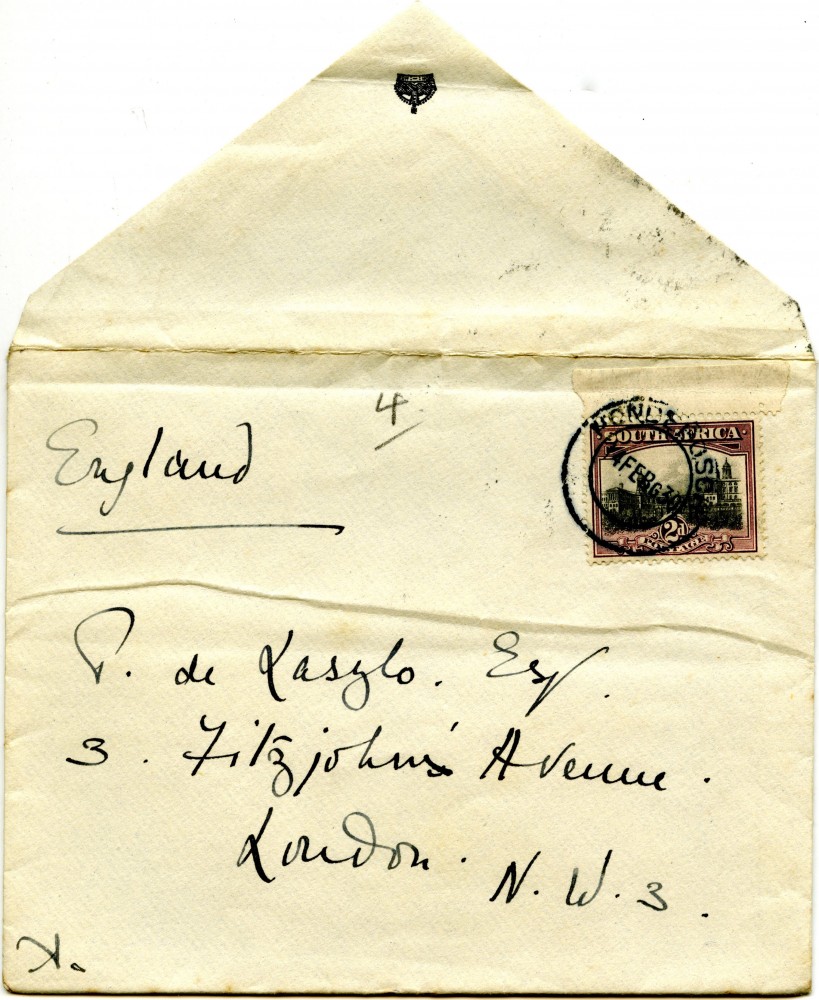 4
England
SOUTH AFRICA
FEB 30
2d
POSTAGE
P. de Laszlo. Esq.
3. Fitzjohn's Avenue.
London.
N. W. 3.